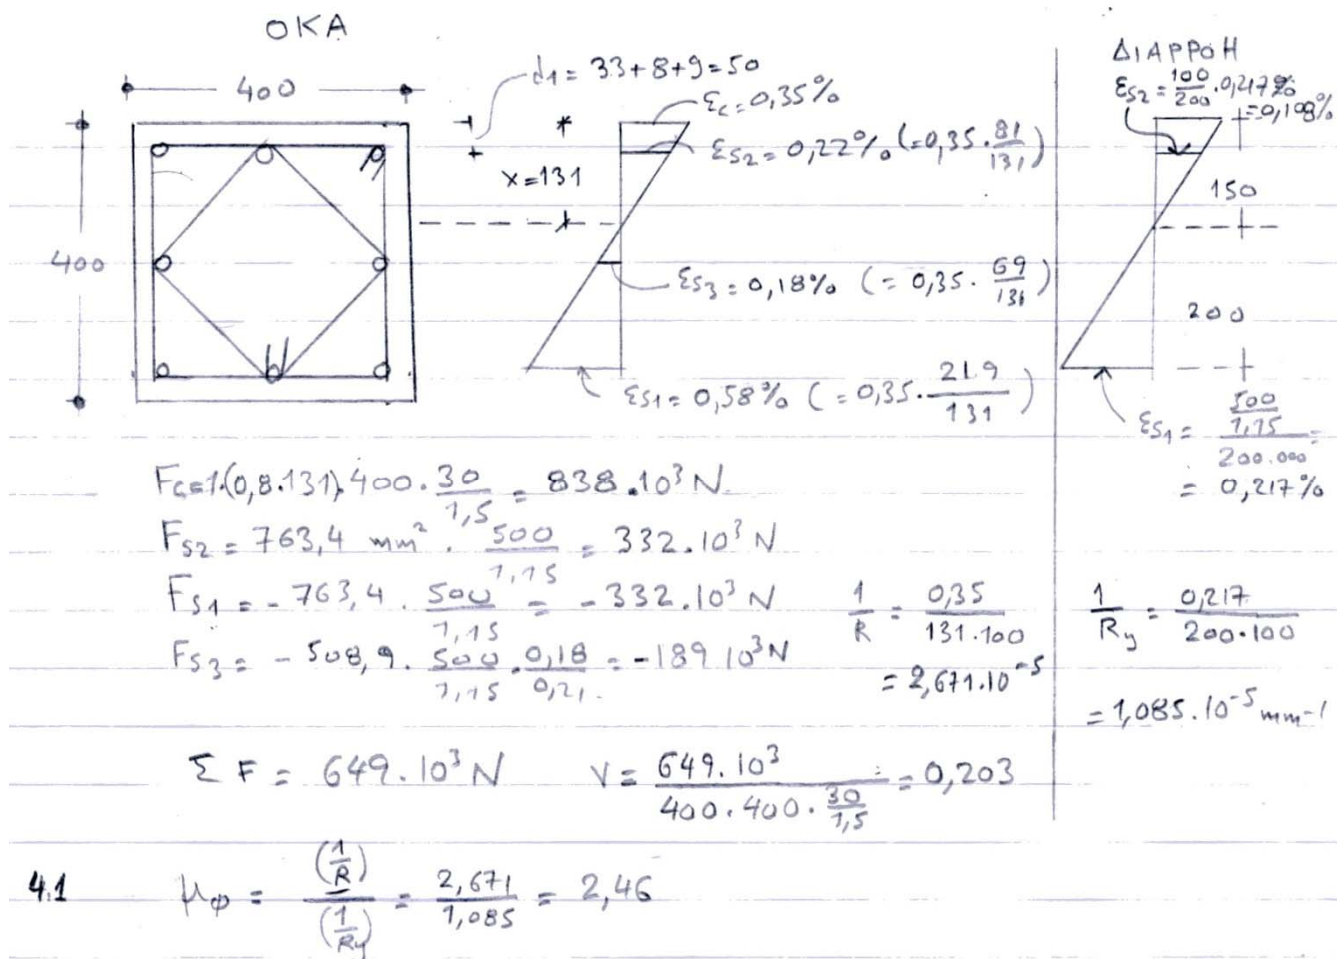 ΟΚΑ
400
400
d1 = 33+8+9=50
x=131
εc=0,35%
εs2=0,22% (=0,35·81/131)
εs3=0,18% (=0,35·69/131)
εs1=0,58% (=0,35·219/131)
ΔΙΑΡΡΟΗ
εs2=100/200·0,217%
=0,108%
150
200
εs1=(500/1,15)/200.000=
=0,217%
Fc=1·(0,8·131)·400·30/1,5=838·10³ N
Fs2=763,4 mm²·500/1,15=332·10³ N
Fs1=-763,4·500/1,15=-332·10³ N
Fs3=-508,9·500/1,15·0,18/0,21.=-189 10³ N
1/R=0,35/131·100
=2,671·10⁻⁵
1/Ry=0,217/200·100
=1,085·10⁻⁵ mm-1
ΣF=649·10³ N
ν=649·10³/(400·400·30/1,5)=0,203
4.1
μφ=(1/R)/(1/Ry)=2,671/1,085=2,46